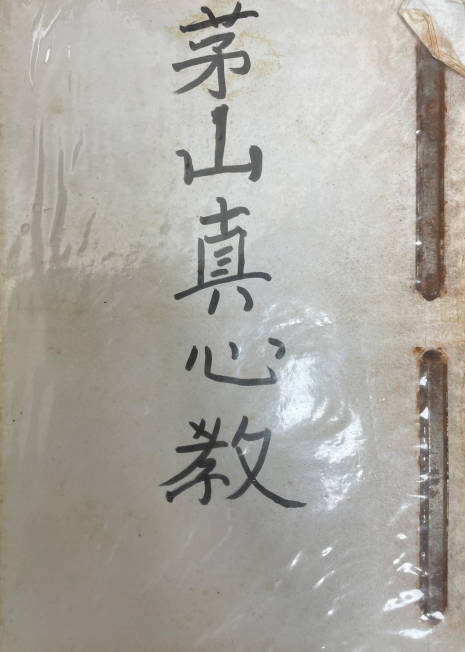 茅山真心教